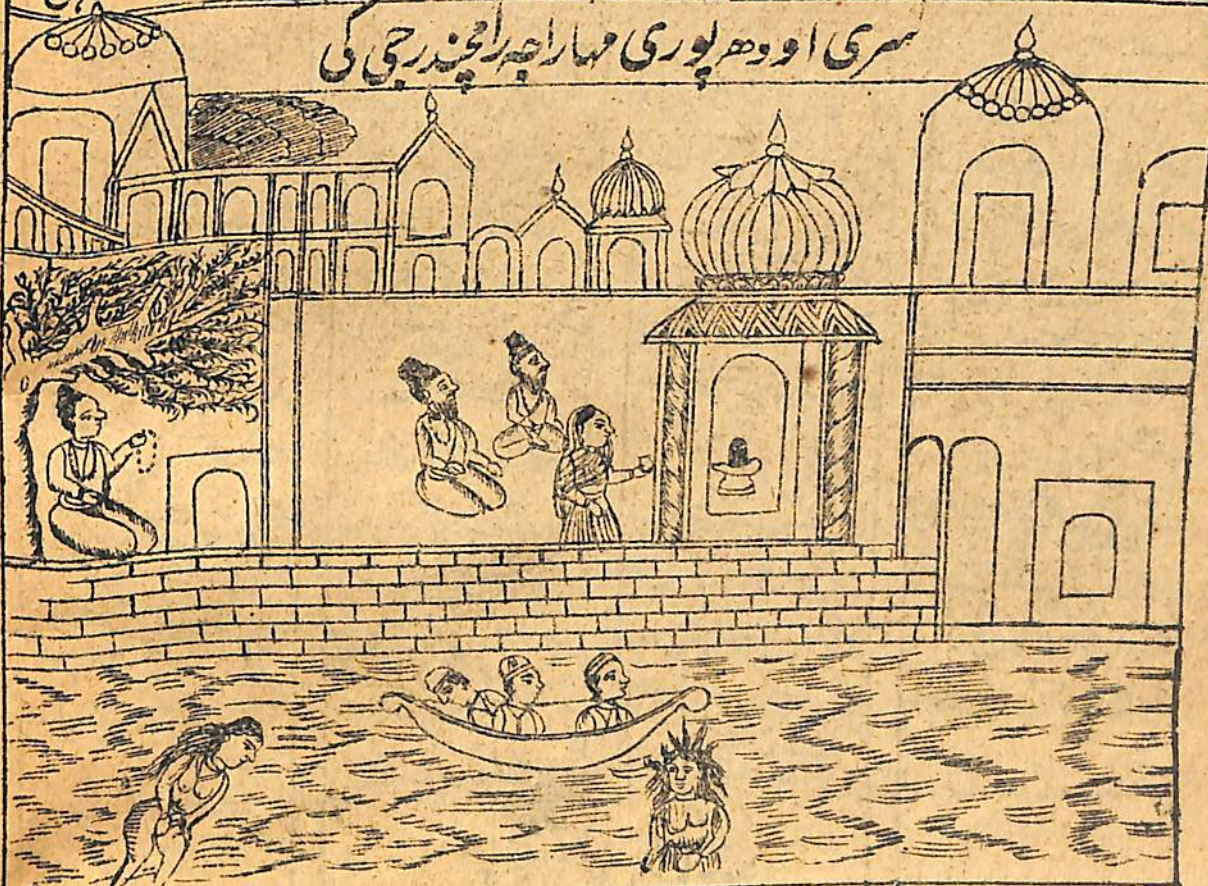 سری اودھ پوری مہاراجہ رامچندر جی کی